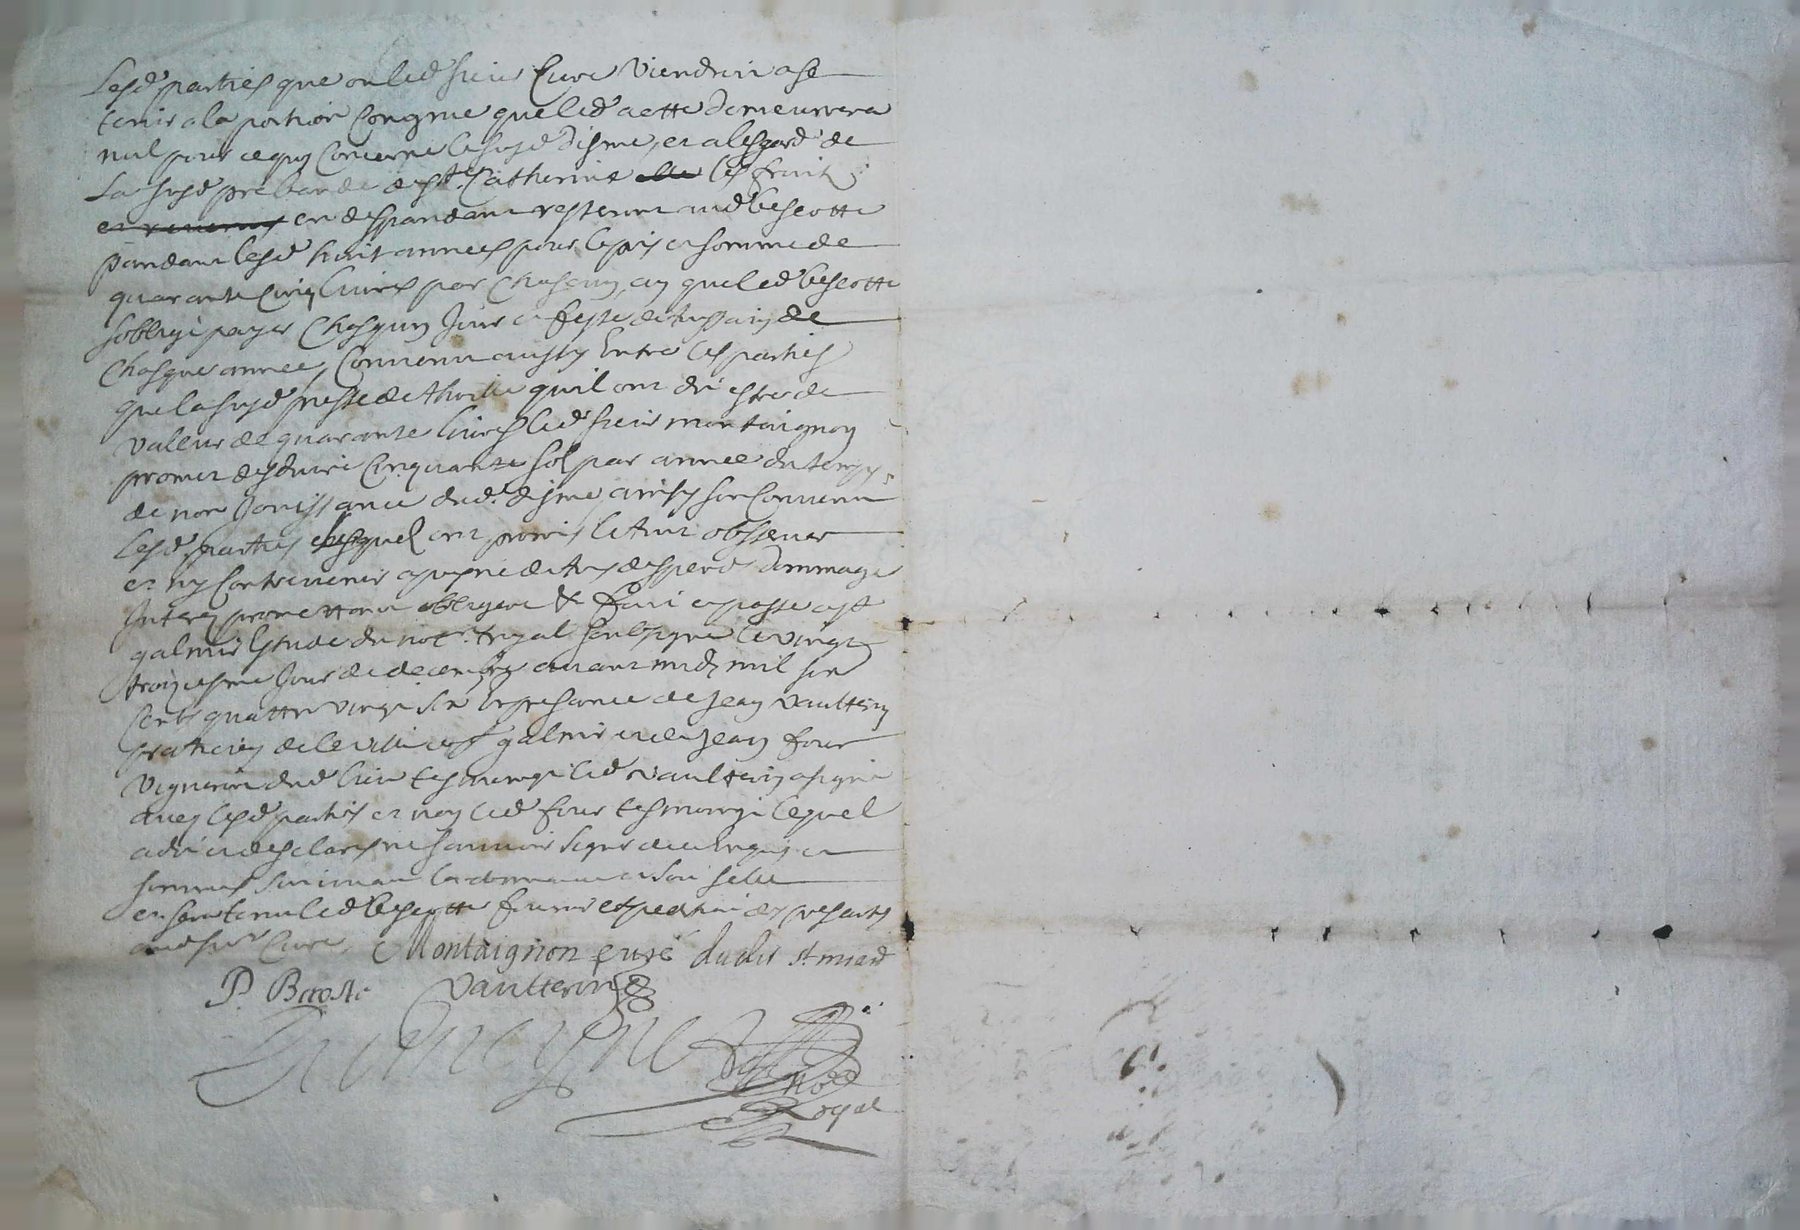 Lesd parties que ou led sieur Curé viendroit a se
tenir a la portion Congrue que led acte demeurera
nul pour ce quy Concerne le susd disme, et a lesgard de
La susd prebande de ste Catherine les fruits
et revenus en despandant resteront aud bescotte
pandant lesd huit années pour le pris et somme de
quarante Cinq livres par Chascung an que led bescotte
soblige payer Chasqung Jour et feste de tousaing de
Chasque année, Convenu aussy Entre les parties
que la susd quil ont dit estre de
valleur de quarante livres led sieur montaignon
promet desduire Cinquante sol par année du temps
de non Jouissance dud. disme, ainsy son Convenu
Lesd parties lesquel ont promis le tout observer
et ny Contrevenir a peyne de tous despens dommages
Interest promettant obligeant &c faict et passé a st
galmier Estude du not. royal soubsigné le vingt
troiziesme Jour de decembre avant midy mil six
cents quattre vingt six En presance de Jean vaultterin
praticien de la ville de st galmier et de Jean four
vigneron dud lieu tesmoings led vaultterin a signé
avec lesd parties et non led four tesmoing lequel
a dit et desclaré ne scavoir signer de ce enquis et
sommés suivant lordonnance
et sera tenu led bescotte fournir expedition des presantes
aud sieur Curé, Montaignon curé dudit st. meard
P. Bscoste vaultterin
not
Royal